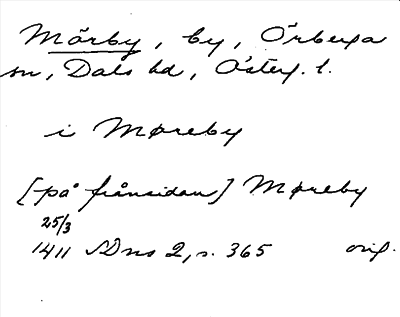 Mörby, by, Örberga
sn, Dals hd, Österg. l.
i Møreby
[på frånsidan] Møreby
25/3
1411 SDns 2, s. 365 orig.